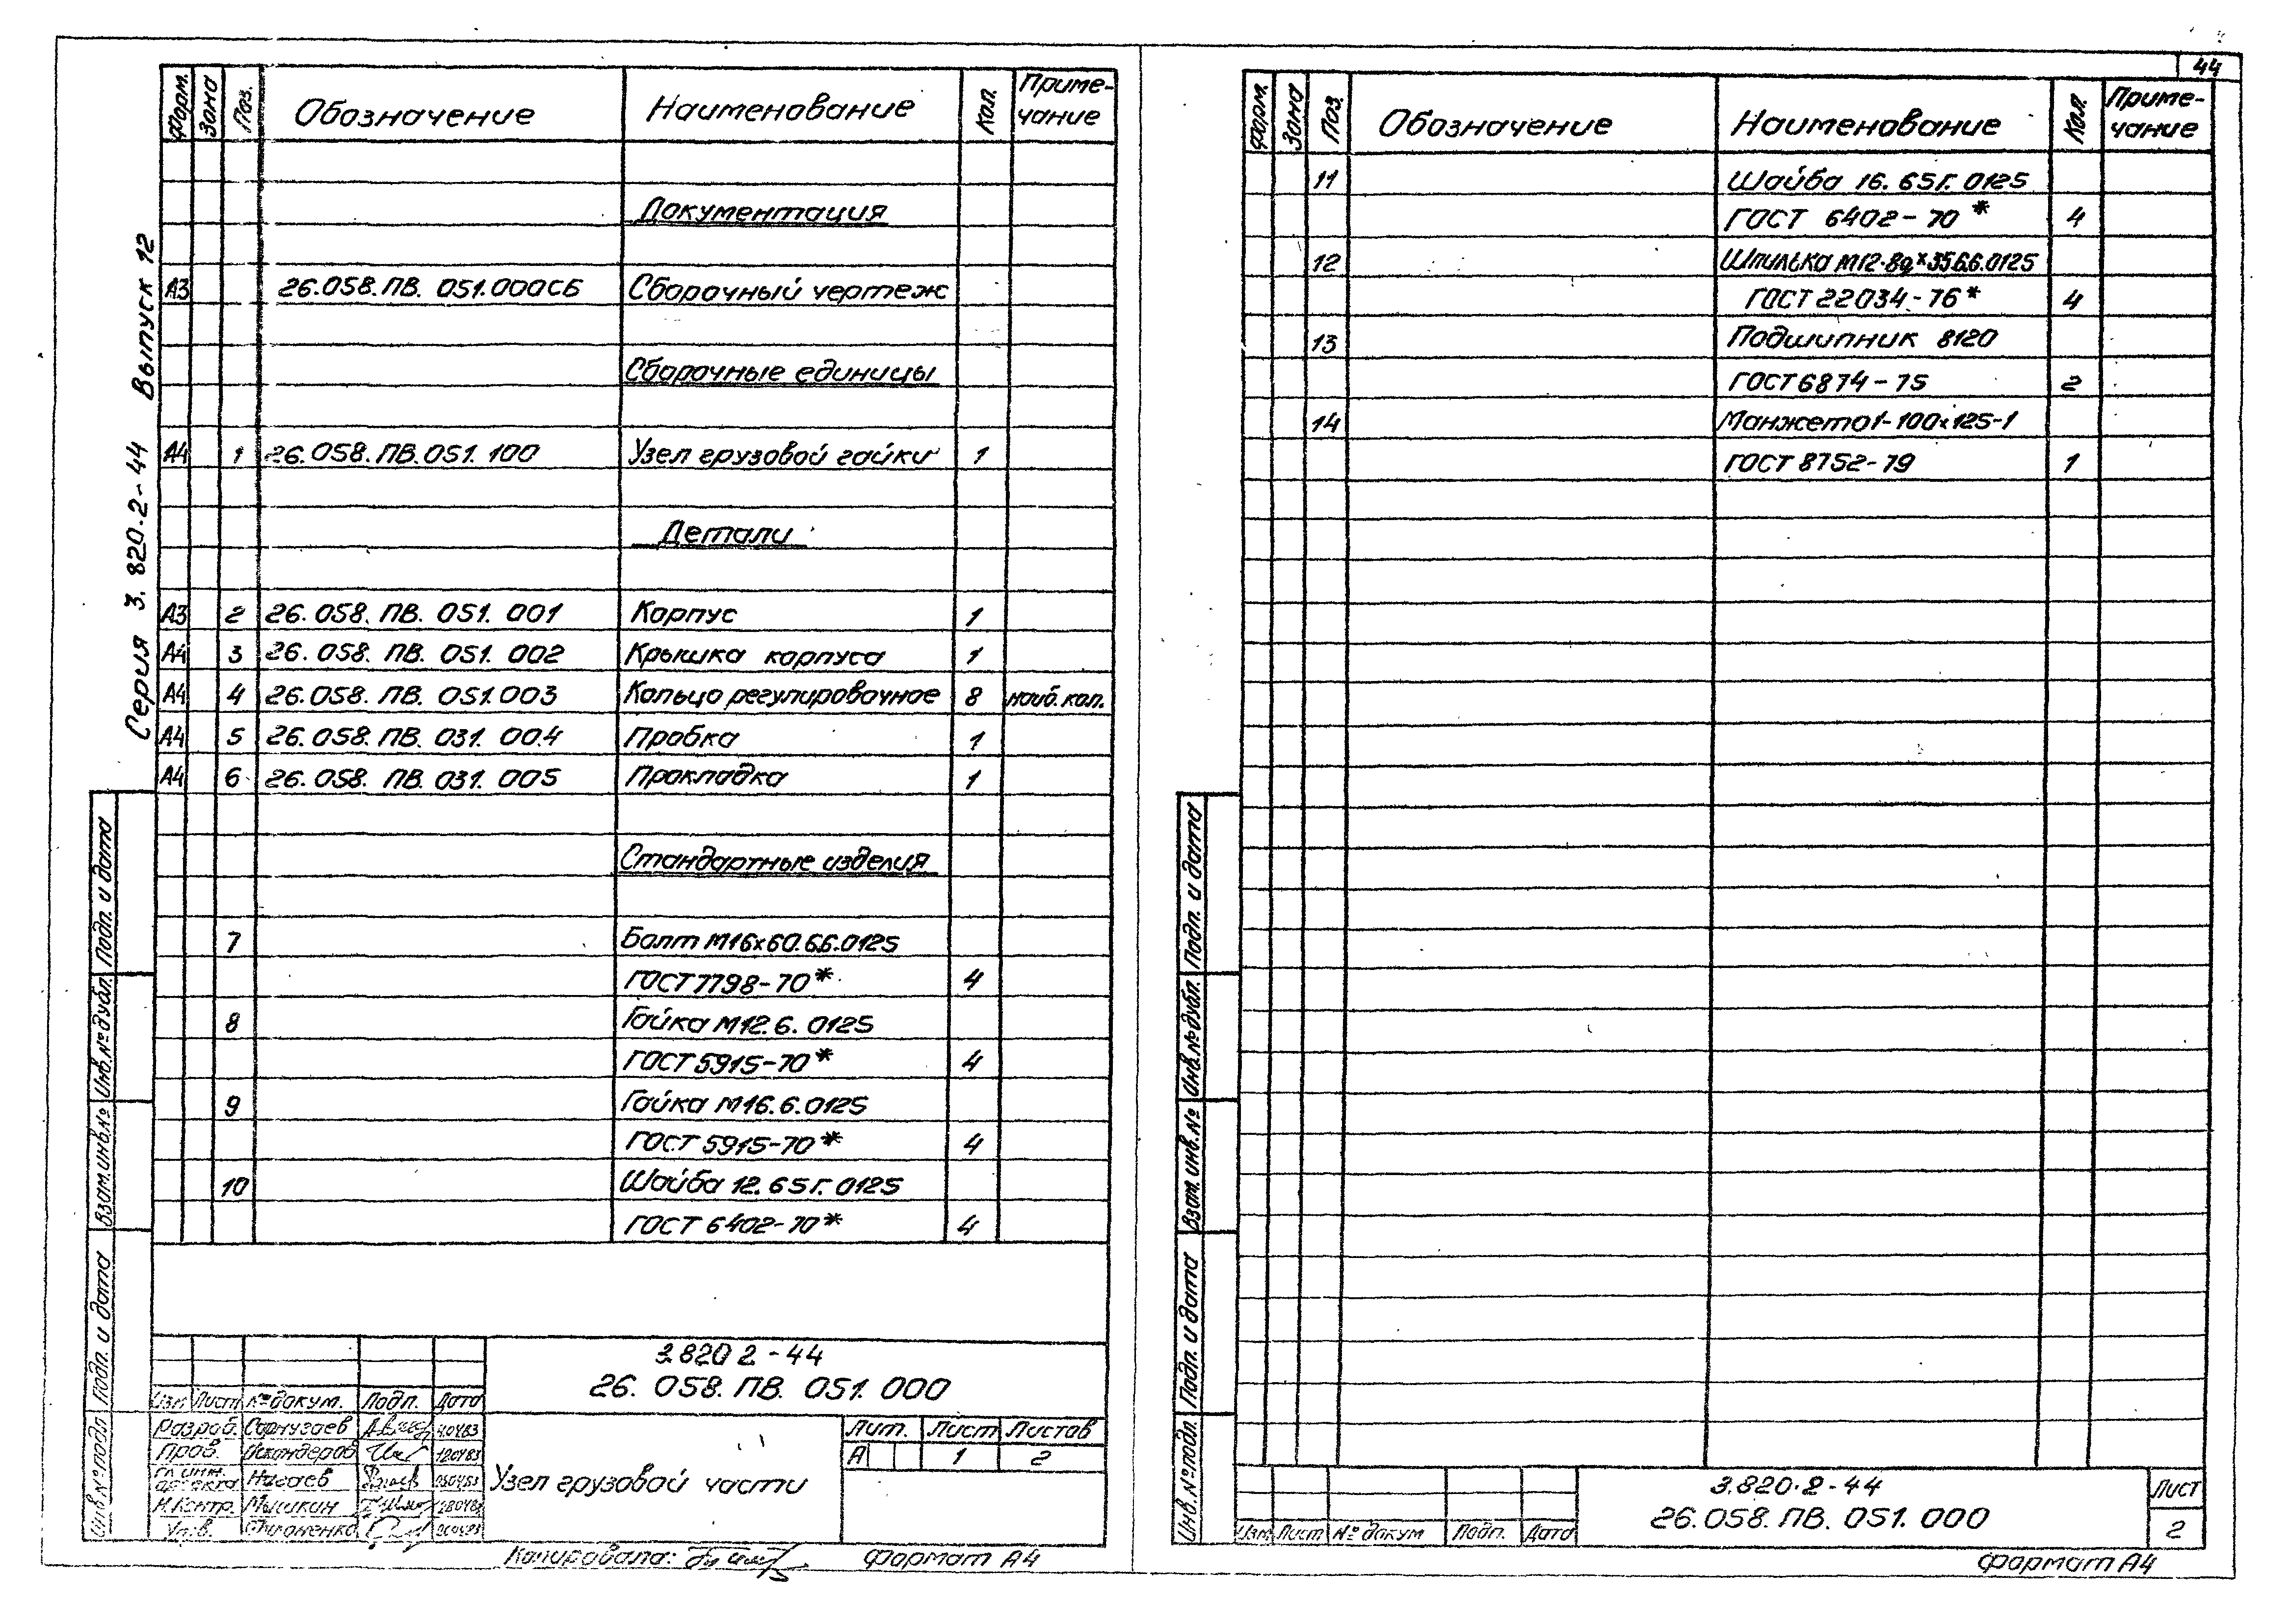 44
Серия 3.820.2-44 Выпуск 12
Форм. Зона Поз. Обозначение Наименование Кол. Приме-
чание
Документация
А3 26.058.ПВ.051.000СБ Сборочный чертеж
Сборочные единицы
А4 1 26.058.ПВ.051.100 Узел грузовой гайки 1
Детали
А3 2 26.058.ПВ.051.001 Корпус 1
А4 3 26.058.ПВ.051.002 Крышка корпуса 1
А4 4 26.058.ПВ.051.003 Кольцо регулировочное 8 наиб.кол.
А4 5 26.058.ПВ.031.004 Пробка 1
А4 6 26.058.ПВ.031.005 Прокладка 1
Стандартные изделия
7 Болт М16х60.66.0125
ГОСТ 7798-70* 4
8 Гайка М12.6.0125
ГОСТ 5915-70* 4
9 Гайка М16.6.0125
ГОСТ 5915-70* 4
10 Шайба 12.65Г.0125
ГОСТ 6402-70* 4
Инв.№подл. Подп. и дата Взам.инв.№ Инв.№дубл. Подп. и дата
3.820 2-44
26.058.ПВ.051.000
Изм Лист №докум. Подп. Дата
Разраб.
Пров. Искандеров
Гл.инж.
проекта Нагаев
Н.Контр. Мышкин
Утв.
Узел грузовой части
Лит. Лист Листов
А 1 2
Копировала: Формат А4
Форм. Зона Поз. Обозначение Наименование Кол. Приме-
чание
11 Шайба 16.65Г.0125
ГОСТ 6402-70* 4
12 Шпилька М12-8gх35.66.0125
ГОСТ 22034-76* 4
13 Подшипник 8120
ГОСТ 6874-75 2
14 Манжета 1-100х125-1
ГОСТ 8752-79 1
Инв.№подл. Подп. и дата Взам.инв.№ Инв.№дубл. Подп. и дата
3.820.2-44
26.058.ПВ.051.000
Изм Лист № докум Подп. Дата
Лист
2
Формат А4